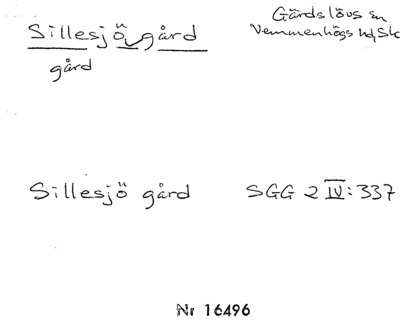 Sillesjö gård
Gärdslövs sn
Vemmenhögs hd, Sk
gård
Sillesjö gård SGG 2 IV:337
Nr 16496